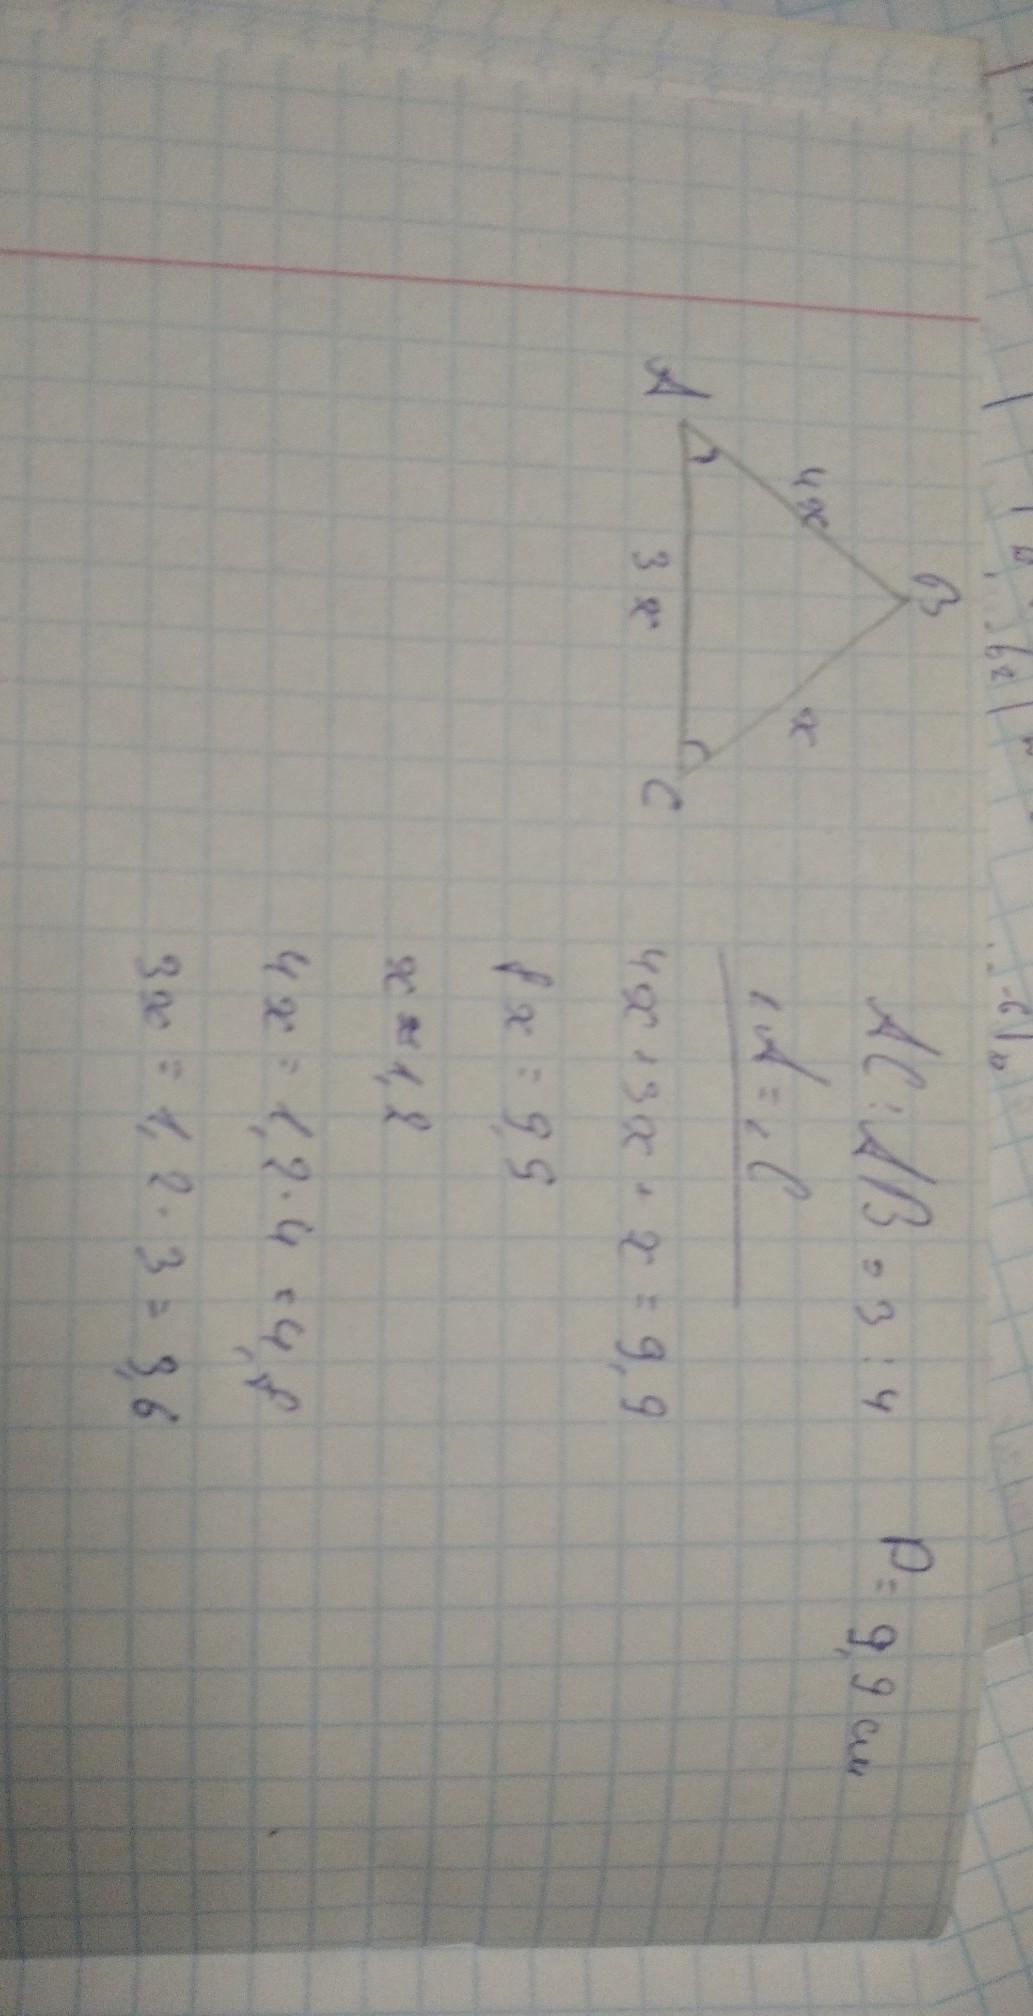 B
4x
x
A
3x
C
AC : AB = 3 : 4 P = 9,9 см
∠A = ∠C
4x + 3x + x = 9,9
8x = 9,9
x = 1,2
4x = 1,2 · 4 = 4,8
3x = 1,2 · 3 = 3,6